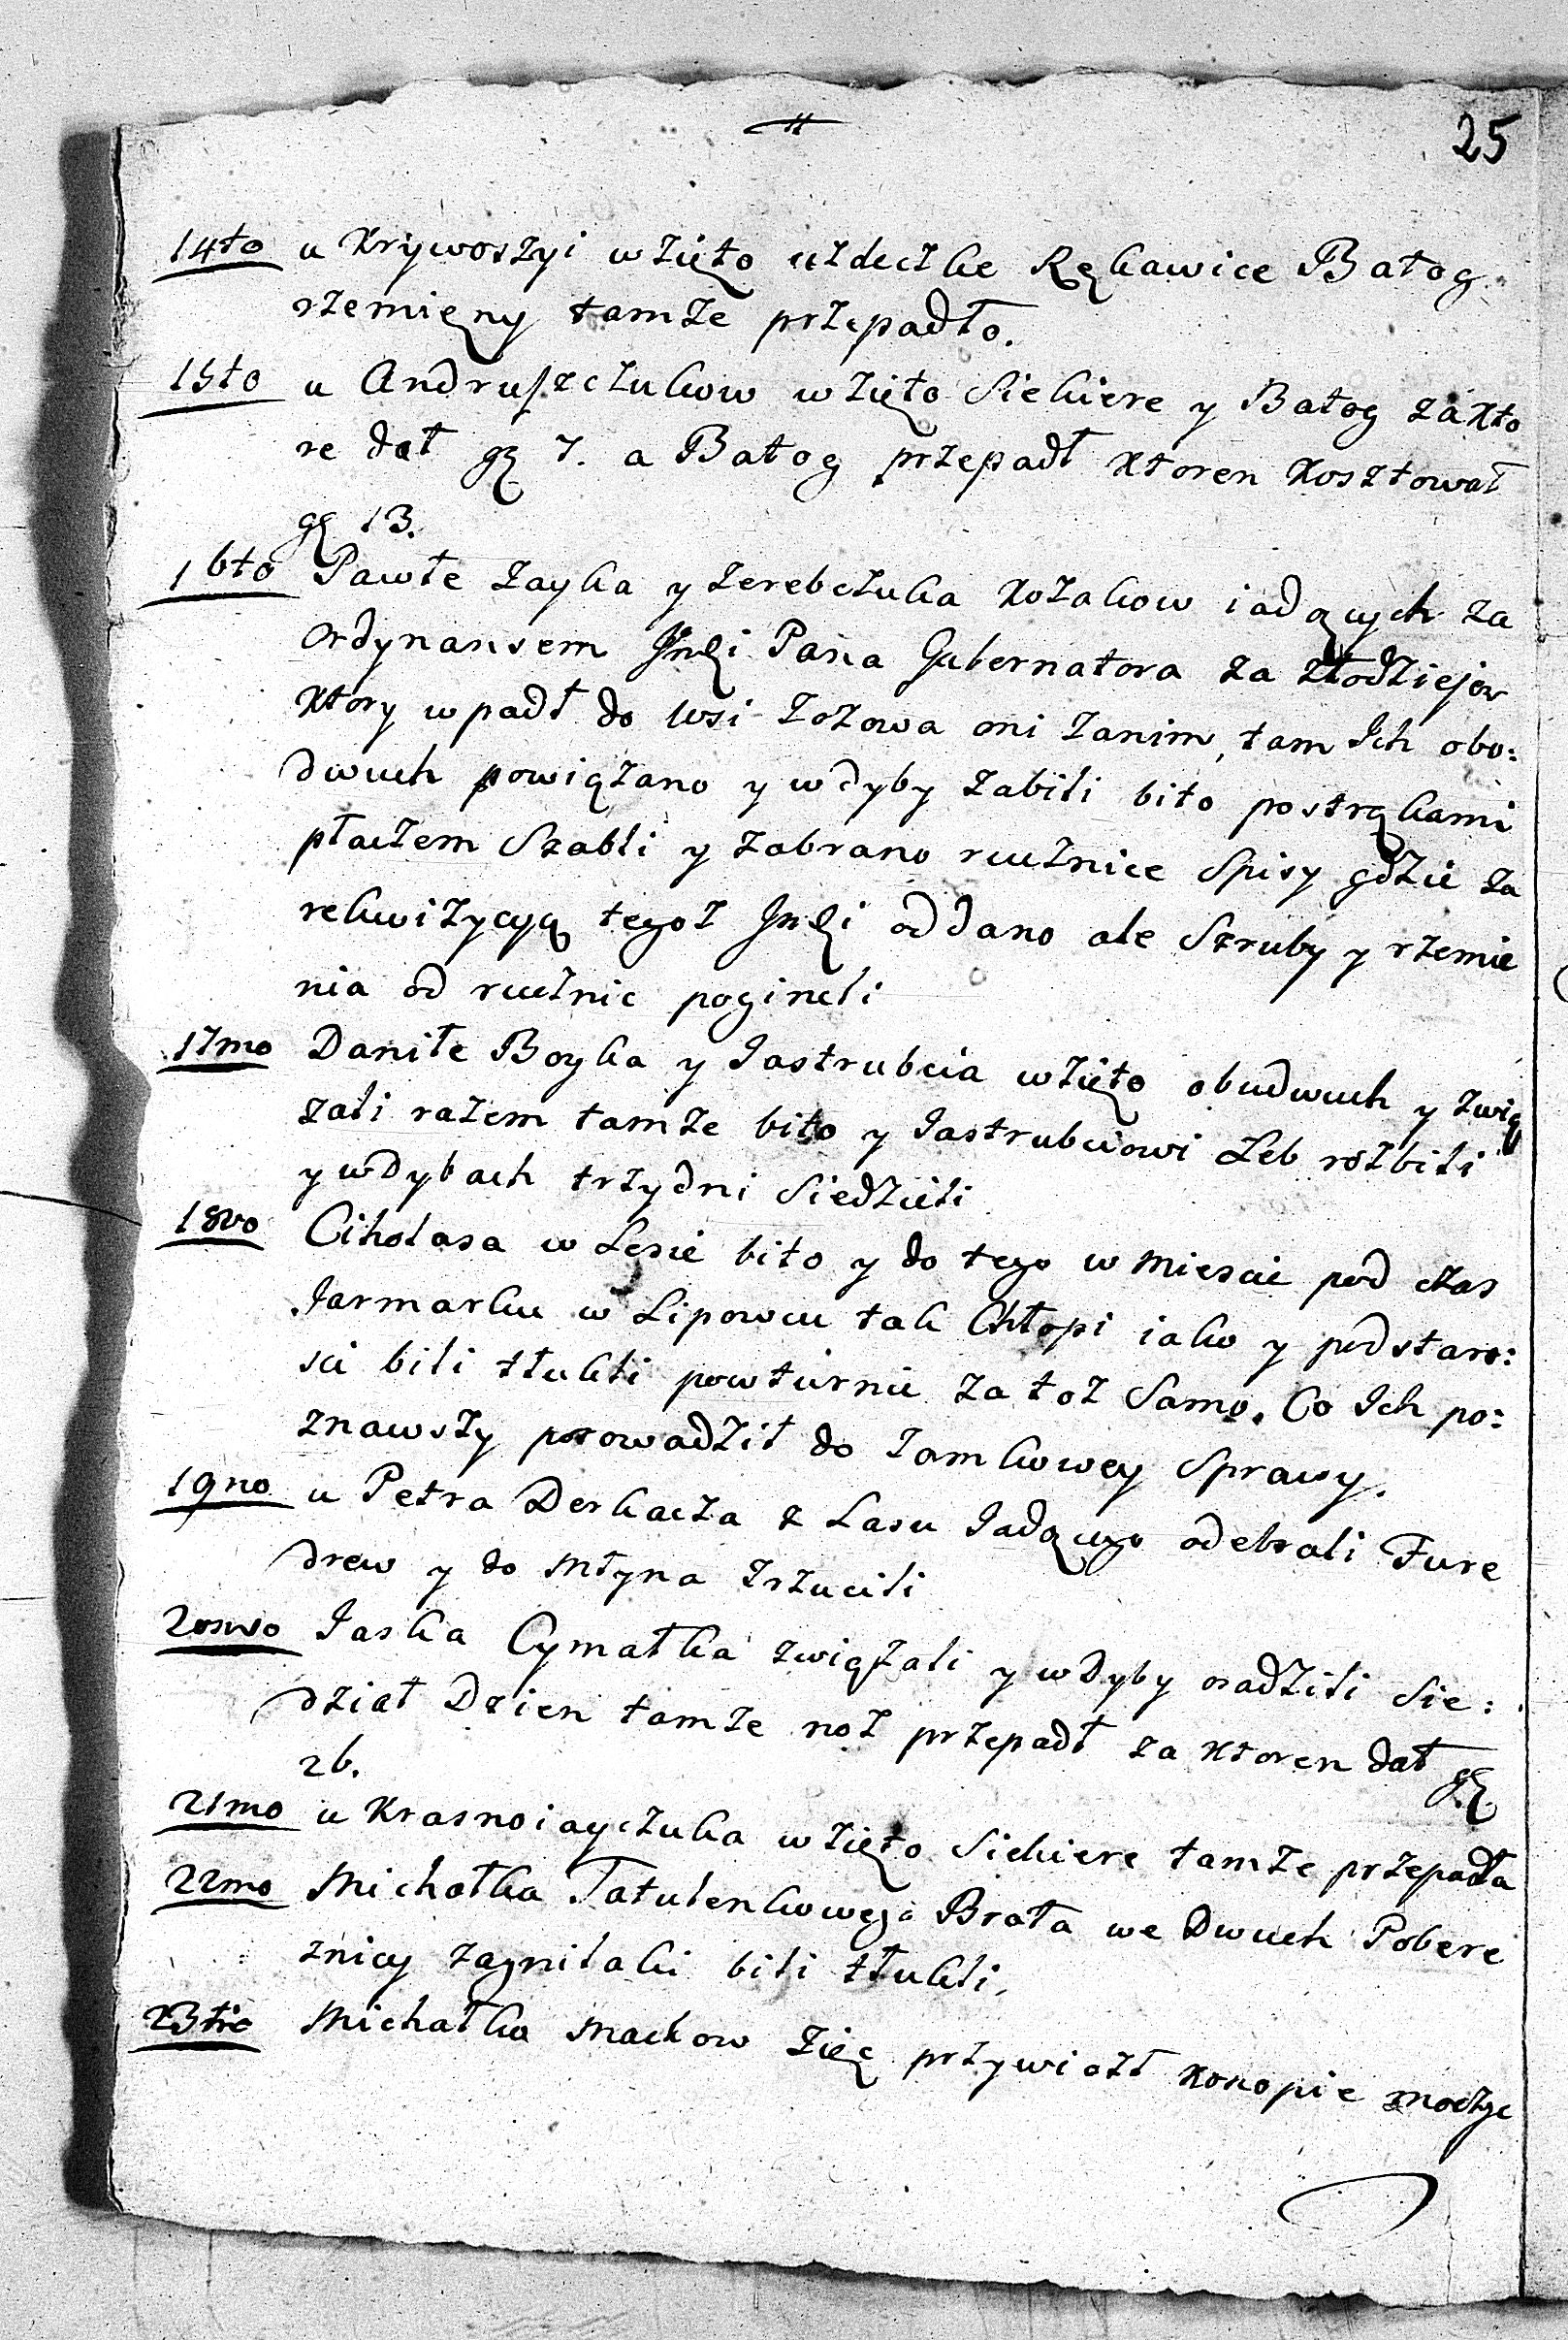 25
14to u Krywoszyi wzięto uzdeczke Rękawice Batog
rzemięny tamze przepadło.
15to u Andruszczukow wzięto Siekiere y Batog za Kto
re dał gę 7. a Batog przepadł Ktoren Kosztował
gę 13.
16to Pawłe Zayka y Zerebczuka Kozakow iadących za
Ordynansem Pana Gubernatora za złodziejow
Ktory wpadł do wsi Zozowa oni zanim, tam Ich obo:
dwuch powiązano y wdyby zabili bito postrąkami
płaczem Szabli y zabrano rucznice Spisy gdzie za
rekwizycyą tegoz oddano ale Szruby y rzemie
nia od rucznic pogineli
17mo Daniłe Boyka y Jastrubcia wzięto obudwuch y zwią
zali razem tamze bito y Jastrubciowi Łeb rozbili
y wdybach trzydni Siedzieli
18vo Ciholasa w Lesie bito y do tego w Miescie pod czas
Jarmarku w Lipowcu tak Chłopi iako y podstaro:
sci bili tłukli powturnie za toz Samo. Co Ich po:
znawszy prowadził do Zamkowey Sprawy.
19no u Petra Derkacza z Lasu Jadącego odebrali Fure
drew y do Młyna zrzucili
20mo Jaska Cymałka związali y wdyby osadzili Sie:
dział Dzien tamze noz przepadł za Ktoren dał gę
26.
21mo u Krasnoiayczuka wzięto Siekiere tamze przepadła
22mo Michałka Tatulenkowego Brata we Dwuch Pobere
znicy Zagnilaki bili tłukli.
23tio Michałka Mackow Zięc przywiozł Konopie moczyc